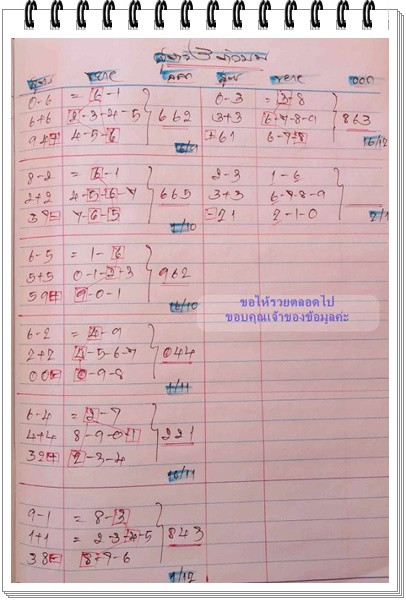 สูตร 3 ตัวบน
สูตร ขยาย ออก สูตร ขยาย ออก
0-6 = 6-1 0-3 = 3-8
6+6 2-3-4-5 662 3+3 6-7-8-9 863
94 4-5-6 61 6-7-8
16/9 16/12
8-2 = 6-1 2-3 1-6
2+2 4-5-6-7 665 3+3 6-7-8-9
37 7-6-5 21 2-1-0
1/10
6-5 = 1-6
5+5 0-1-2+3 962
59 9-0-1
16/10
ขอให้รวยตลอดไป
ขอบคุณเจ้าของข้อมูลค่ะ
6-2 = 4-9
2+2 4-5-6-7 044
00 0-9-8
1/11
6-4 = 2-7
4+4 8-9-0-1 221
32 2-3-4
16/11
9-1 = 8-3
1+1 = 2-3-4-5 843
38 8+7-6
1/12